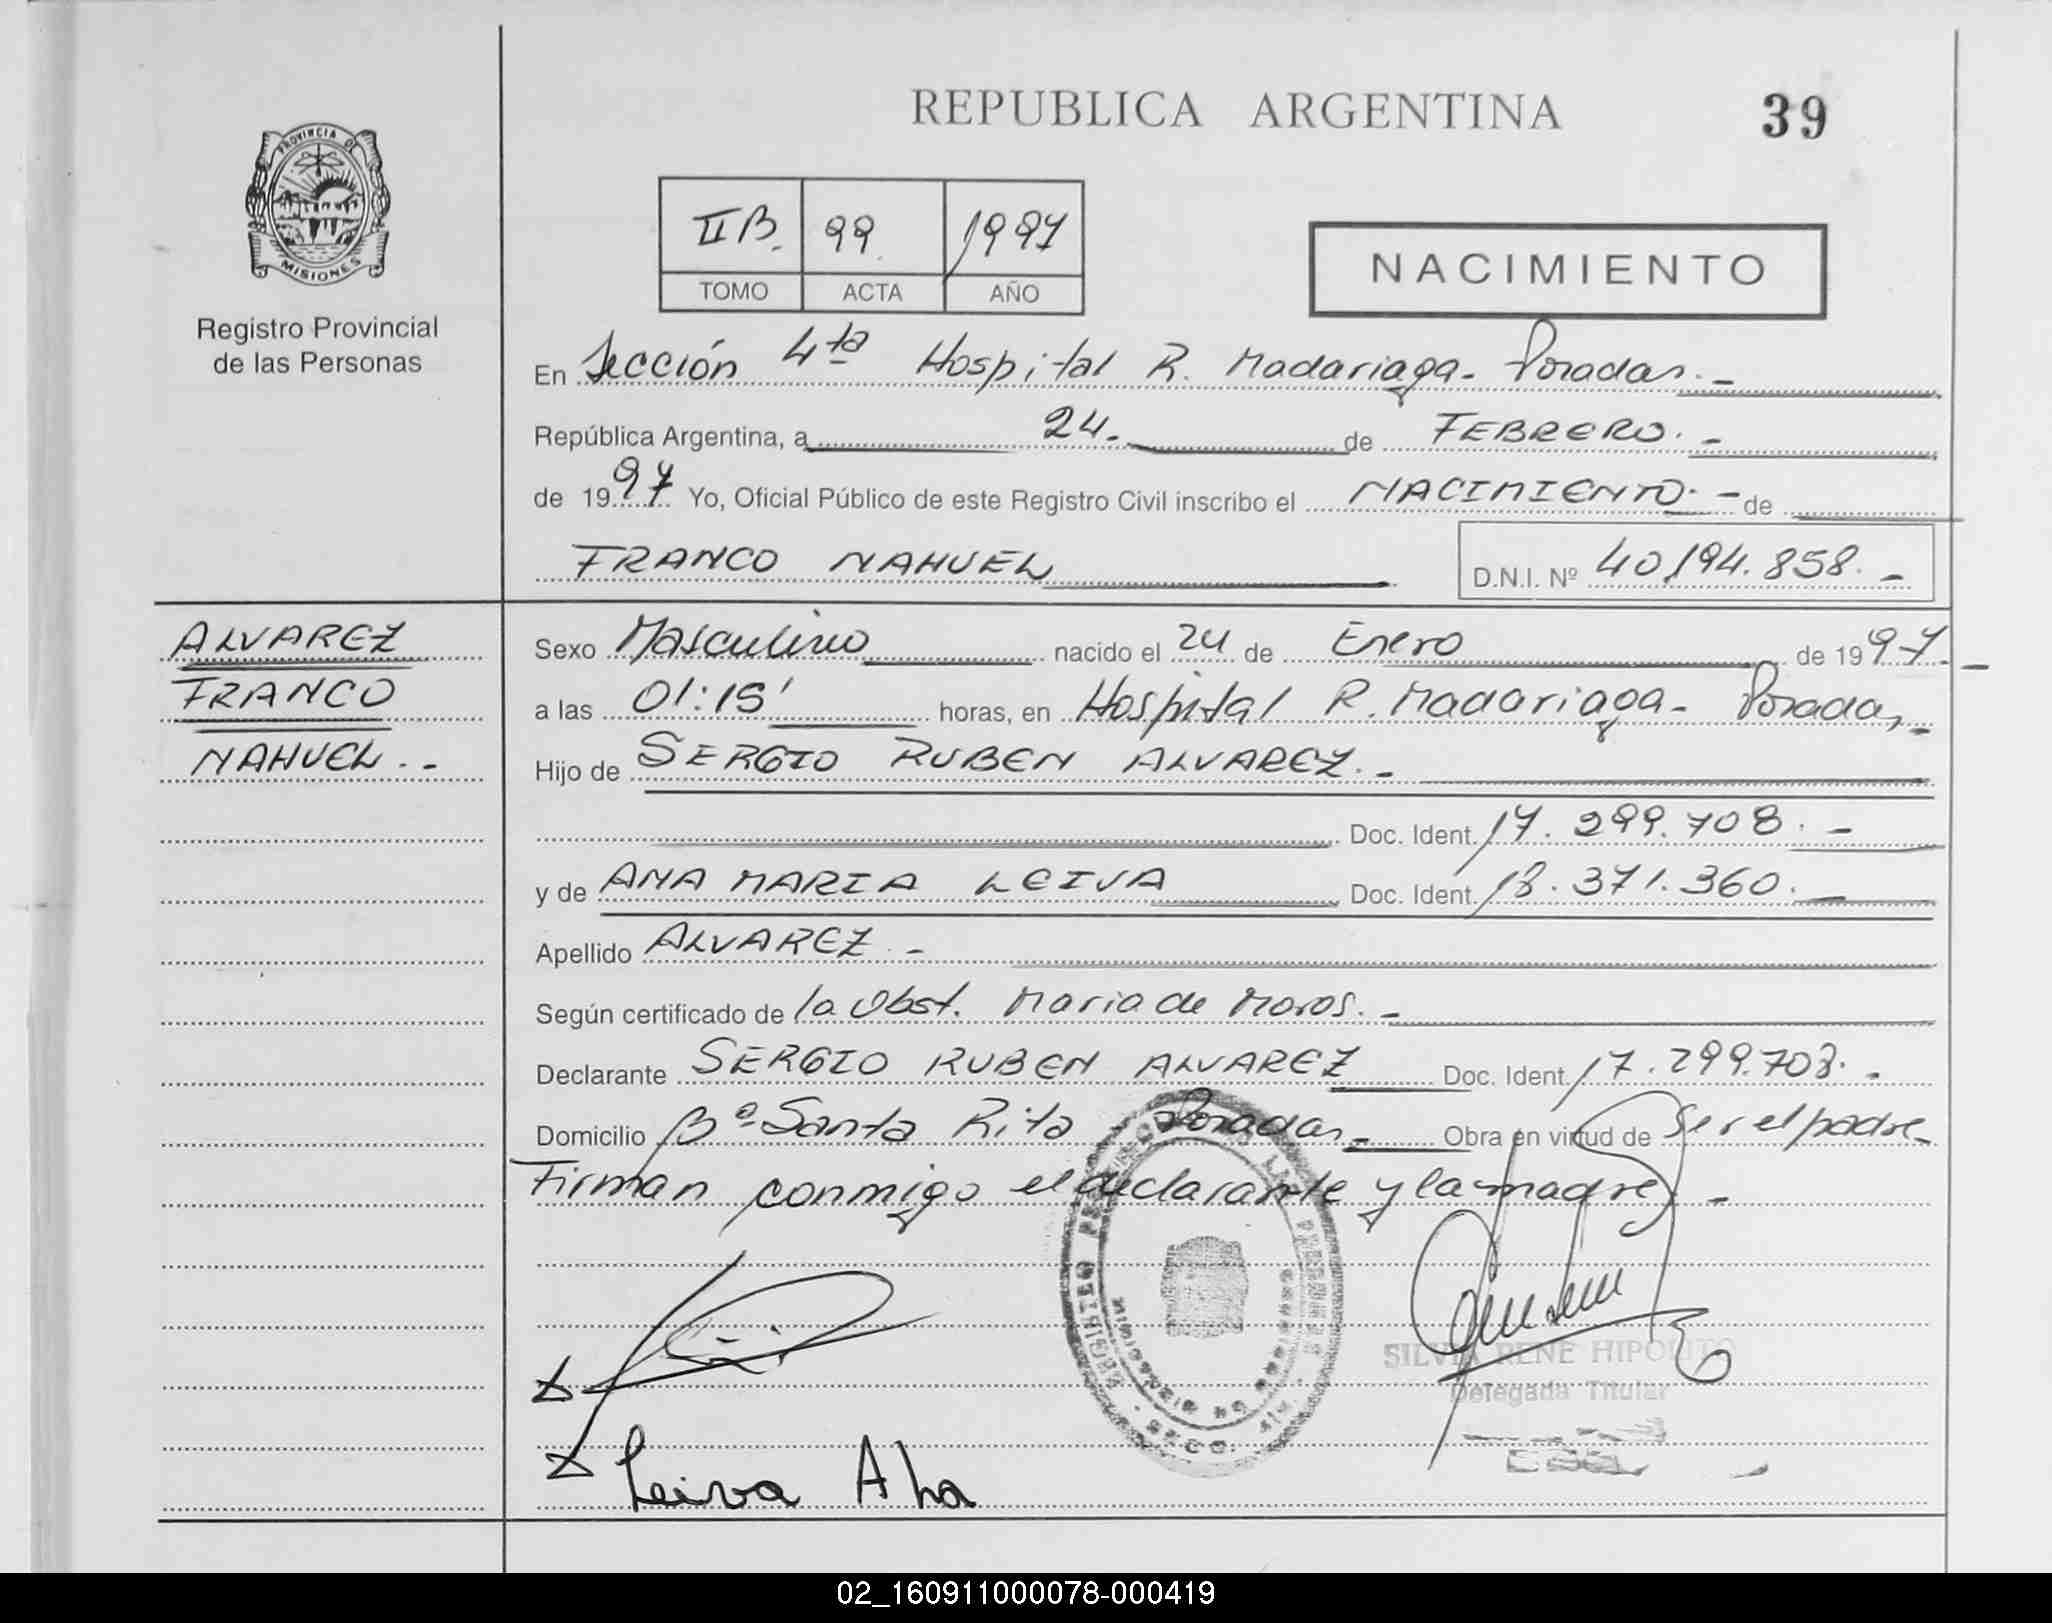 REPUBLICA ARGENTINA 39
PROVINCIA DE MISIONES
Registro Provincial
de las Personas
IIB. 99. 1997
TOMO ACTA AÑO
NACIMIENTO
En Sección 4ta Hospital R. Madariaga - Posadas. -
República Argentina, a 24. - de FEBRERO. -
de 1997 Yo, Oficial Público de este Registro Civil inscribo el NACIMIENTO. - de
FRANCO NAHUEL D.N.I. Nº 40.194.858. -
ALVAREZ
FRANCO
NAHUEL. -
Sexo Masculino nacido el 24 de Enero de 1997. -
a las 01:15' horas, en Hospital R. Madariaga - Posadas, -
Hijo de SERGIO RUBEN ALVAREZ. -
Doc. Ident. 17.299.708. -
y de ANA MARIA LEIVA Doc. Ident. 18.371.360. -
Apellido ALVAREZ. -
Según certificado de la Obst. Maria de Moros. -
Declarante SERGIO RUBEN ALVAREZ Doc. Ident. 17.299.708. -
Domicilio Bº Santa Rita - Posadas - Obra en virtud de ser el padre -
Firman conmigo el declarante y la madre. -
SILVIA RENE HIPOLITO
Delegada Titular
Leiva Ana
02_160911000078-000419